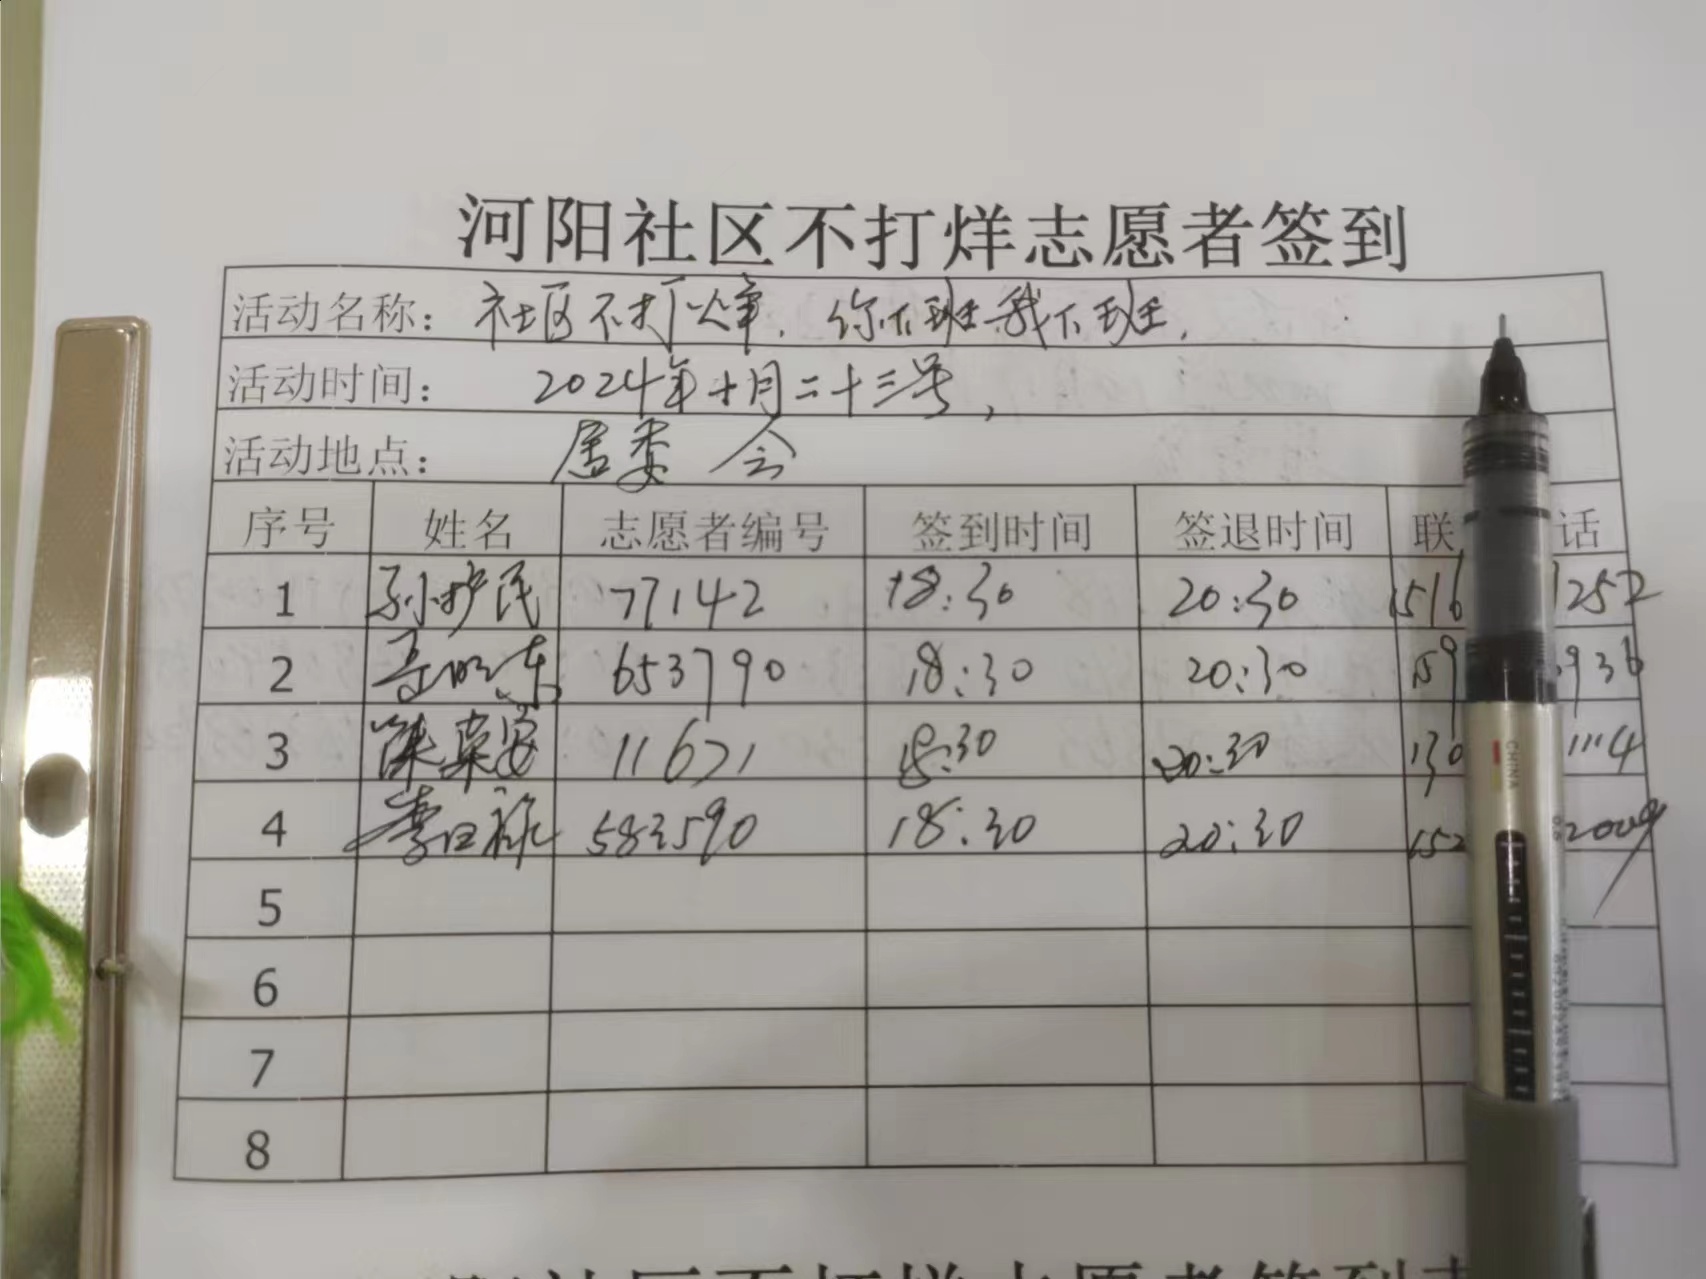 河阳社区不打烊志愿者签到
活动名称：社区不打烊，你下班我下班，
活动时间：2024年十月二十三号，
活动地点：居委会
序号 姓名 志愿者编号 签到时间 签退时间 联 话
1 孙护民 77142 18:30 20:30 1516 1252
2 东 653790 18:30 20:30 159 936
3 陈荣安 11671 18:30 20:30 130 1114
4 李日禄 583590 18:30 20:30 152 2009
5
6
7
8
CHINA